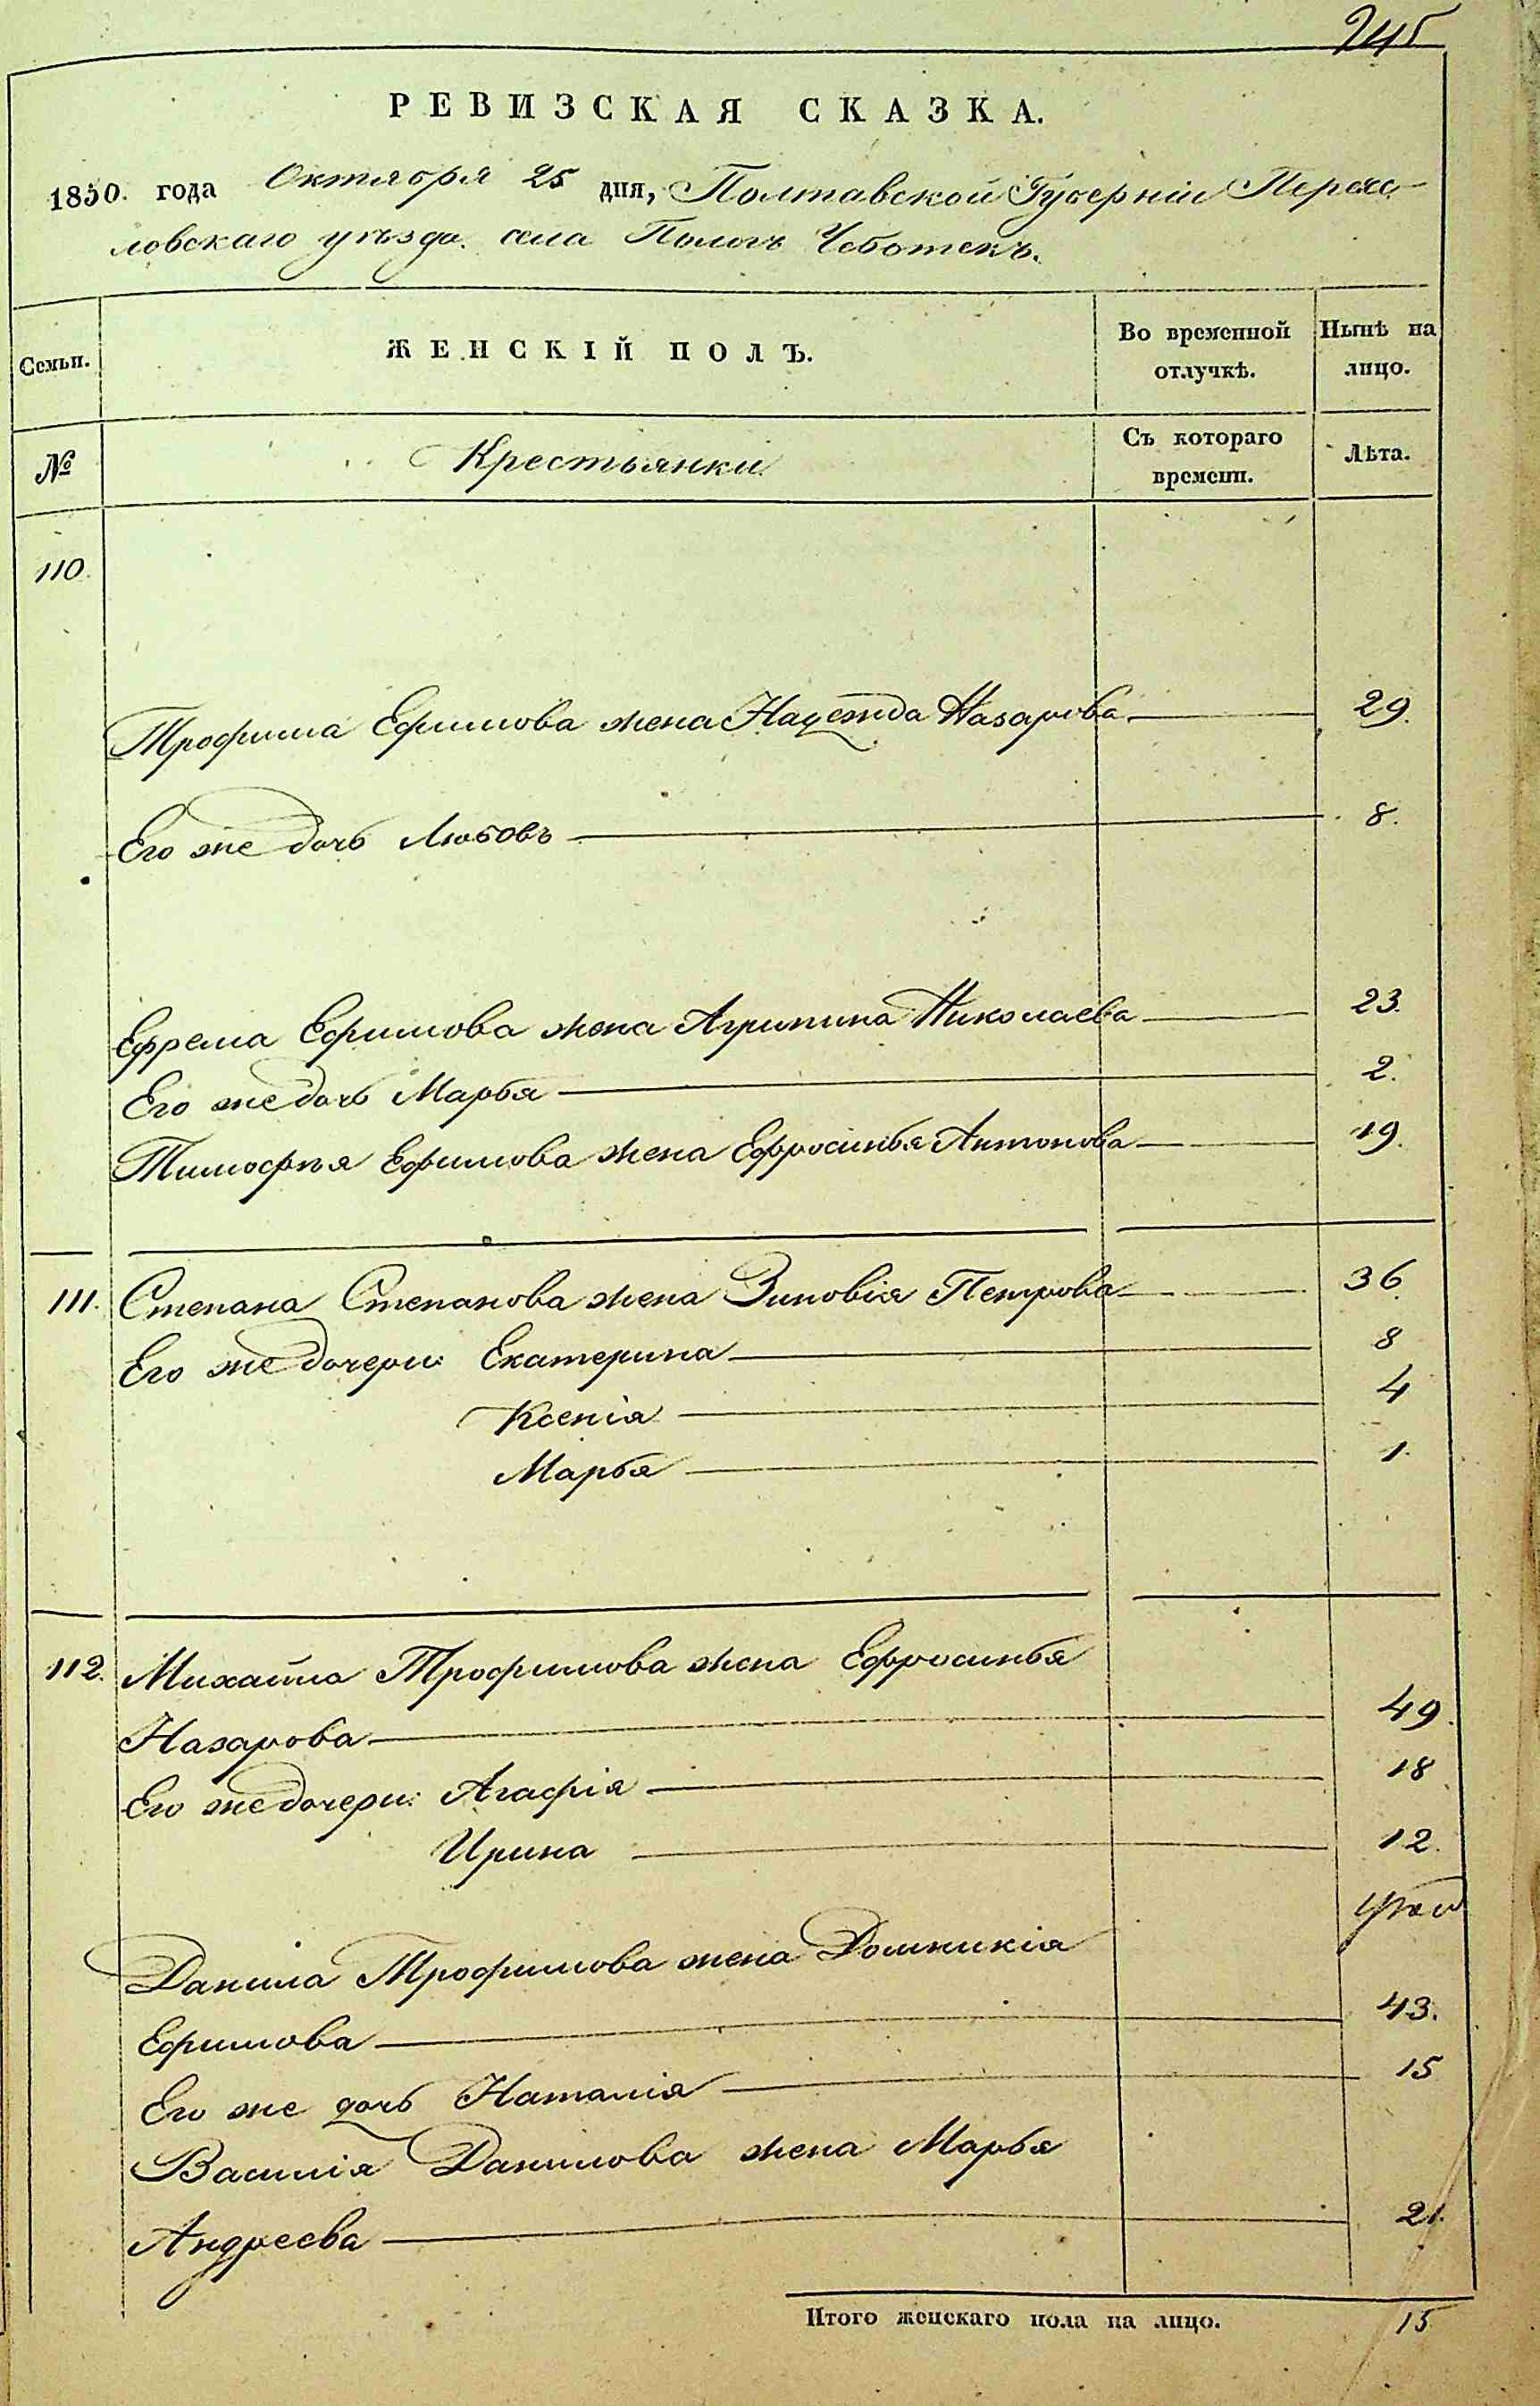 245
РЕВИЗСКАЯ СКАЗКА.
1850. года Октября 25 дня, Полтавской Губерніи Переяс-
ловскаго уѣзда. села Пологъ Чеботекъ.
Семьи.
ЖЕНСКІЙ ПОЛЪ.
Во временной отлучкѣ.
Нынѣ на лицо.
№
Крестьянки
Съ котораго времени.
Лѣта.
110.
Трофима Ефимова жена Надежда Назарова 29.
Его же дочь Любовь 8.
Ефрема Ефимова жена Агрипина Николаева 23.
Его же дочь Марья 2.
Тимофѣя Ефимова жена Ефросинья Антонова 19.
111. Степана Степанова жена Зиновія Петрова 36
Его же дочери: Екатерина 8
Ксенія 4
Марья 1.
112. Михайла Трофимова жена Ефросинья
Назарова 49.
Его же дочери: Агафія 18
Ирина 12.
Данила Трофимова жена Домникія
Ефимова 43.
Его же дочь Наталія 15
Василія Данилова жена Марья
Андреева 21.
Итого женскаго пола на лицо. 15